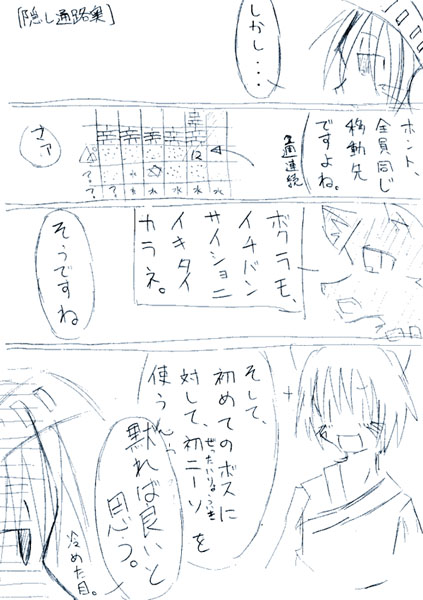 [隠し通路奥]
しかし・・・
ホント、
全員同じ
移動先
ですよね。
通連続
12
？
？
水
水
水
水
さァ？
ボクラモ、
イチバン
サイショニ
イキタイ
カラネ。
そうですね
そして、
初めてのボスに
対して、初ニーソを
使う
黙れば良いと
思う。
冷めた目。